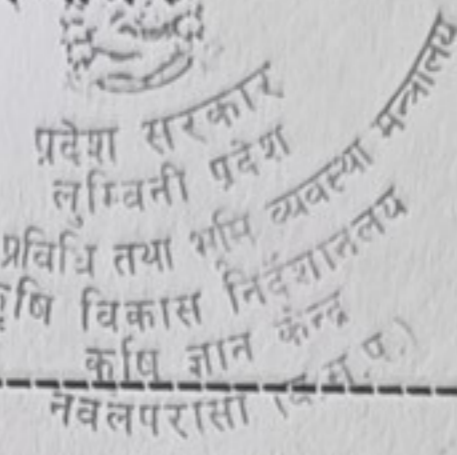 प्रदेश सरकार
लुम्विनी प्रदेश
प्रविधि तथा भूमि व्यवस्था मन्त्रालय
कृषि विकास निर्देशानलय
कृषि ज्ञान केन्द्र
नवलपरासी (ब.सु.प.)